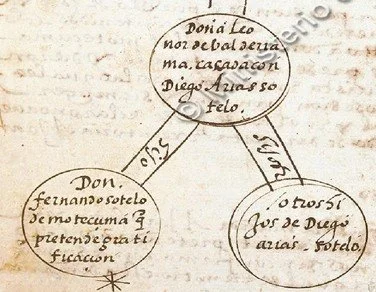 Doña Leo
nor de balderra
ma. casada con
Diego Arias so
telo.
hijo
hijos
Don.
fernando sotelo
de motecuma q̃
pretende grati
ficacion
otros hi
jos de Diego
arias. sotelo.
© Ministerio de